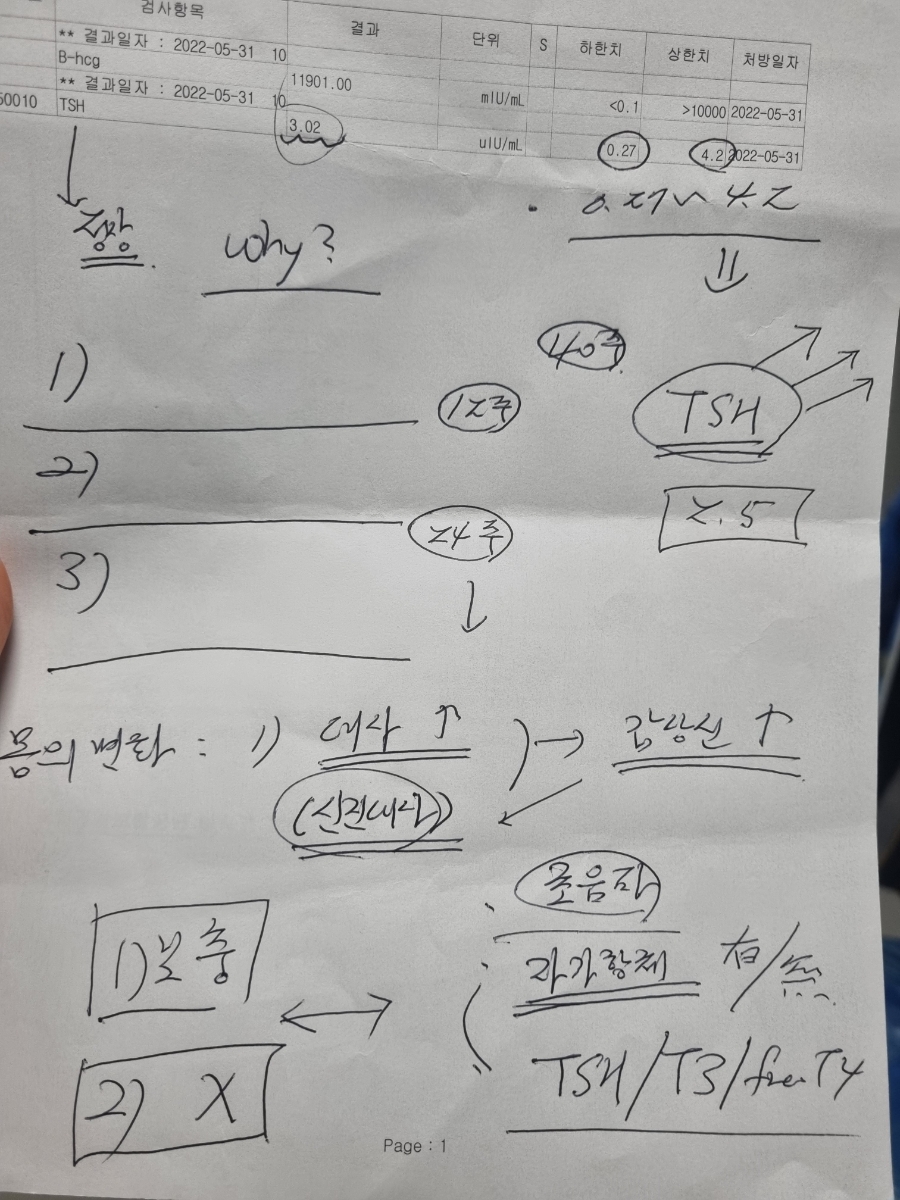 검사항목 결과 단위 S 하한치 상한치 처방일자
** 결과일자 : 2022-05-31 10
B-hcg 11901.00 mIU/mL <0.1 >10000 2022-05-31
** 결과일자 : 2022-05-31 10
50010 TSH 3.02 uIU/mL 0.27 4.2 2022-05-31
0.27~4.2
Why?
40주
1)
12주
TSH
2)
24주
2.5
3)
몸의 변화 : 1) 대사 ↑ → 갑상선 ↑
(신진대사)
초음파
1) 보충
자가항체 有/無
2) X
TSH/T3/free T4
Page : 1